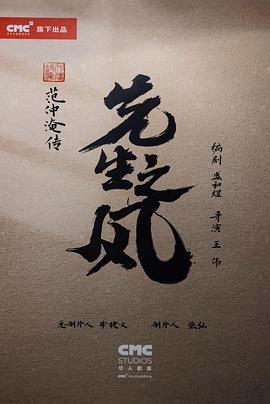 CMC 旗下出品
范仲淹传
先生之风
编剧 盛和煜 导演 王伟
总制片人 制片人
CMC
STUDIOS
华人影业
CMC